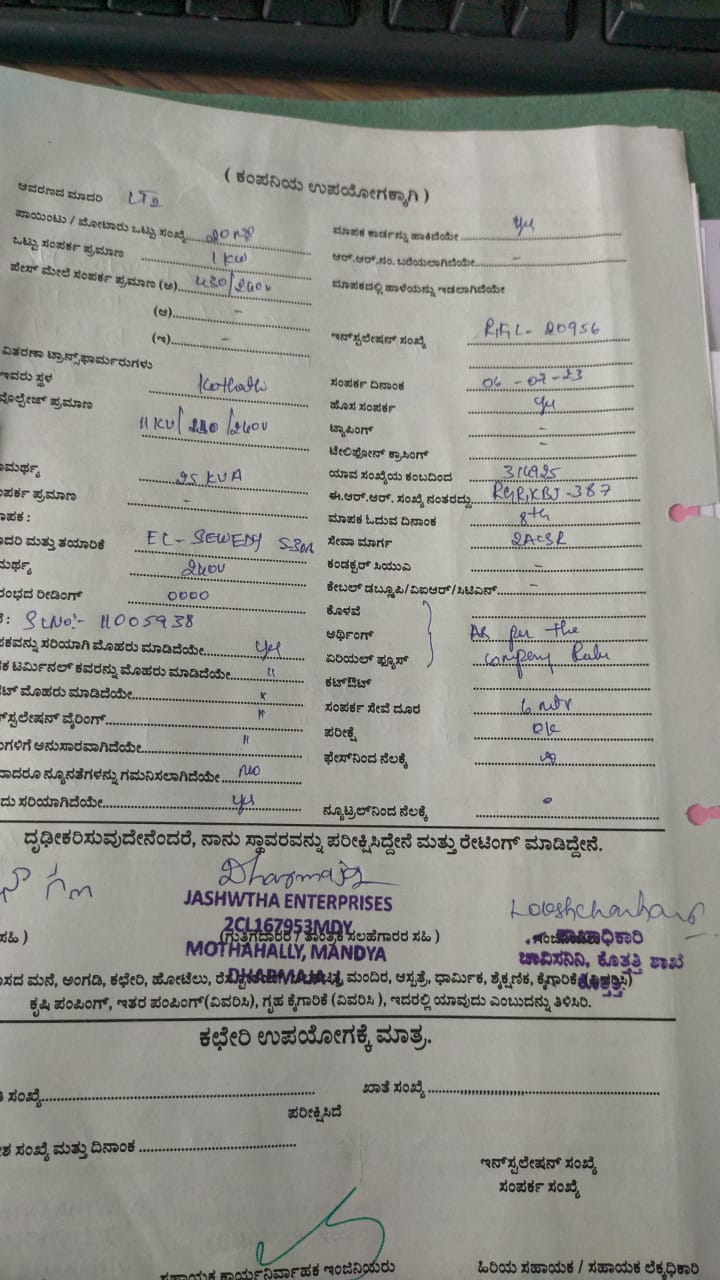 ( ಕಂಪನಿಯ ಉಪಯೋಗಕ್ಕಾಗಿ )
ಆವರಣದ ಮಾದರಿ LT2
ಪಾಯಿಂಟು / ಮೋಟಾರು ಒಟ್ಟು ಸಂಖ್ಯೆ
ಒಟ್ಟು ಸಂಪರ್ಕ ಪ್ರಮಾಣ 1 KW
ಫೇಸ್ ಮೇಲೆ ಸಂಪರ್ಕ ಪ್ರಮಾಣ (ಅ) 430/240V
(ಆ) -
(ಇ) -
ವಿತರಣಾ ಟ್ರಾನ್ಸ್‌ಫಾರ್ಮರುಗಳು
ಇವರು ಸ್ಥಳ Kothathi
ವೊಲ್ಟೇಜ್ ಪ್ರಮಾಣ 11 KV/ /240V
ಾಮರ್ಥ್ಯ 25 KVA
ಪರ್ಕ ಪ್ರಮಾಣ -
ಾಪಕ :
ಾದರಿ ಮತ್ತು ತಯಾರಿಕೆ EL- SEWEDY
ಮರ್ಥ್ಯ 240V
ರಂಭದ ರೀಡಿಂಗ್ 0000
: SLNO:- 11005938
ಪಕವನ್ನು ಸರಿಯಾಗಿ ಮೊಹರು ಮಾಡಿದೆಯೇ yes
ಕ ಟರ್ಮಿನಲ್ ಕವರನ್ನು ಮೊಹರು ಮಾಡಿದೆಯೇ "
ಟ್ ಮೊಹರು ಮಾಡಿದೆಯೇ "
ನ್‌ಸ್ಟಲೇಷನ್ ವೈರಿಂಗ್ "
ಗಳಿಗೆ ಅನುಸಾರವಾಗಿದೆಯೇ "
ಾದಾದರೂ ನ್ಯೂನತೆಗಳನ್ನು ಗಮನಿಸಲಾಗಿದೆಯೇ No
ದು ಸರಿಯಾಗಿದೆಯೇ yes
ಮಾಪಕ ಕಾರ್ಡನ್ನು ಹಾಕಿದೆಯೇ Yes
ಆರ್.ಆರ್.ನಂ. ಬರೆಯಲಾಗಿದೆಯೇ -
ಮಾಪಕದಲ್ಲಿ ಹಾಳೆಯನ್ನು ಇಡಲಾಗಿದೆಯೇ
ಇನ್‌ಸ್ಟಲೇಷನ್ ಸಂಖ್ಯೆ 20956
ಸಂಪರ್ಕ ದಿನಾಂಕ 06-07-23
ಹೊಸ ಸಂಪರ್ಕ Yes
ಟ್ಯಾಪಿಂಗ್ -
ಟೆಲಿಫೋನ್ ಕ್ರಾಸಿಂಗ್ -
ಯಾವ ಸಂಖ್ಯೆಯ ಕಂಬದಿಂದ 314925
ಈ.ಆರ್.ಆರ್. ಸಂಖ್ಯೆ ನಂತರದ್ದು -387
ಮಾಪಕ ಓದುವ ದಿನಾಂಕ 8th
ಸೇವಾ ಮಾರ್ಗ 2ACSR
ಕಂಡಕ್ಟರ್ ಸಿಯುಎ -
ಕೇಬಲ್ ಡಬ್ಲೂಪಿ/ವಿಐಆರ್/ಸಿಟಿಎಸ್ -
ಕೊಳವೆ
ಅರ್ಥಿಂಗ್ As per the
ಏರಿಯಲ್ ಫ್ಯೂಸ್ Company Rules
ಕಟ್‌ಔಟ್
ಸಂಪರ್ಕ ಸೇವೆ ದೂರ 6 mtr
ಪರೀಕ್ಷೆ Ok
ಫೇಸ್‌ನಿಂದ ನೆಲಕ್ಕೆ
ನ್ಯೂಟ್ರಲ್‌ನಿಂದ ನೆಲಕ್ಕೆ
ದೃಢೀಕರಿಸುವುದೇನೆಂದರೆ, ನಾನು ಸ್ಥಾವರವನ್ನು ಪರೀಕ್ಷಿಸಿದ್ದೇನೆ ಮತ್ತು ರೇಟಿಂಗ್ ಮಾಡಿದ್ದೇನೆ.
Dharmaraj
JASHWTHA ENTERPRISES
2CL167953MDY
ಸಹಿ ) (ಗುತ್ತಿಗೆದಾರರ / ತಾಂತ್ರಿಕ ಸಲಹೆಗಾರರ ಸಹಿ )
MOTHAHALLY, MANDYA
ಶಾಖಾಧಿಕಾರಿ
ಚಾವಿಸನಿನಿ, ಕೊತ್ತತ್ತಿ ಶಾಖೆ
ಕೊತ್ತತ್ತಿ
ಾಸದ ಮನೆ, ಅಂಗಡಿ, ಕಛೇರಿ, ಹೋಟೆಲು, ಮಂದಿರ, ಆಸ್ಪತ್ರೆ, ಧಾರ್ಮಿಕ, ಶೈಕ್ಷಣಿಕ, ಕೈಗಾರಿಕೆ (ವಿವರಿಸಿ)
ಕೃಷಿ ಪಂಪಿಂಗ್, ಇತರ ಪಂಪಿಂಗ್(ವಿವರಿಸಿ), ಗೃಹ ಕೈಗಾರಿಕೆ (ವಿವರಿಸಿ ), ಇದರಲ್ಲಿ ಯಾವುದು ಎಂಬುದನ್ನು ತಿಳಿಸಿರಿ.
ಕಛೇರಿ ಉಪಯೋಗಕ್ಕೆ ಮಾತ್ರ.
ಸಂಖ್ಯೆ ಖಾತೆ ಸಂಖ್ಯೆ
ಪರೀಕ್ಷಿಸಿದೆ
ಶ ಸಂಖ್ಯೆ ಮತ್ತು ದಿನಾಂಕ
ಇನ್‌ಸ್ಟಲೇಷನ್ ಸಂಖ್ಯೆ
ಸಂಪರ್ಕ ಸಂಖ್ಯೆ
ಸಹಾಯಕ ಕಾರ್ಯನಿರ್ವಾಹಕ ಇಂಜಿನಿಯರು ಹಿರಿಯ ಸಹಾಯಕ / ಸಹಾಯಕ ಲೆಕ್ಕಾಧಿಕಾರಿ